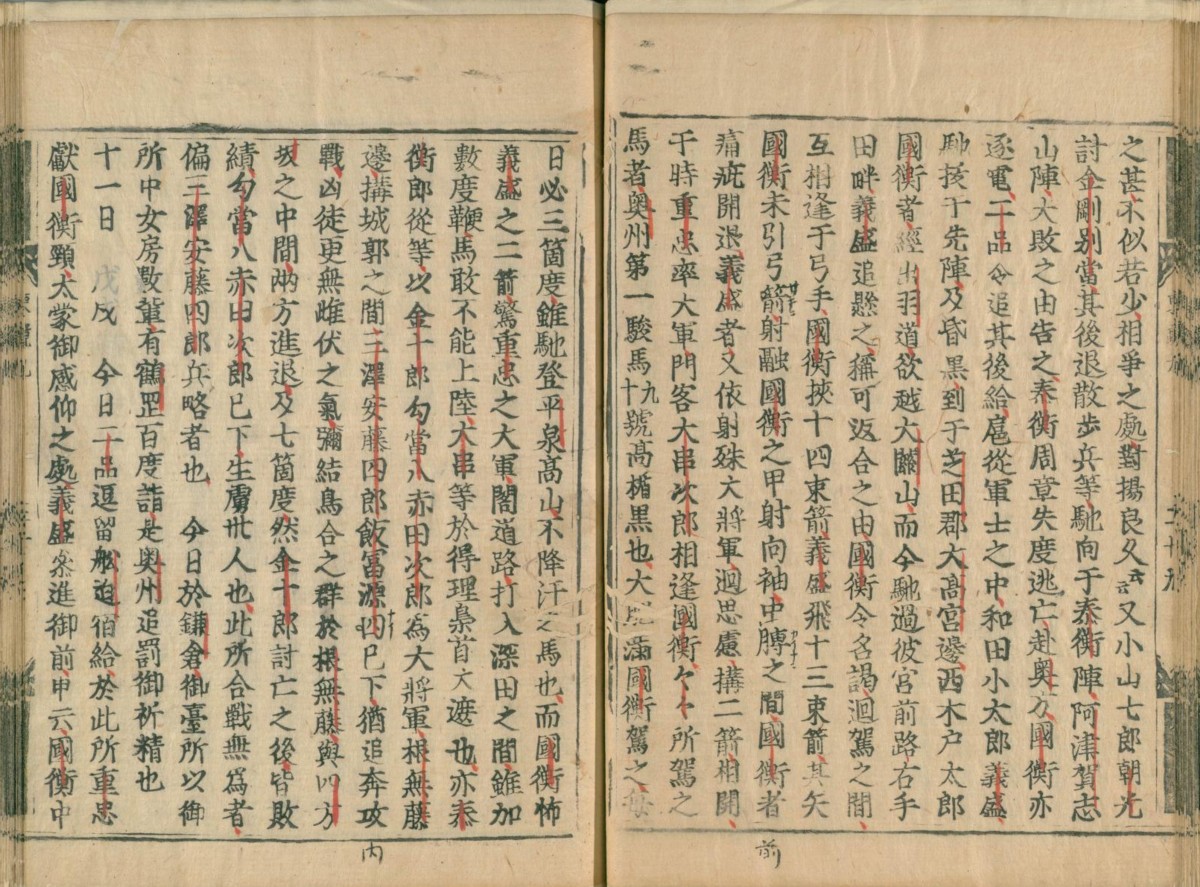 之甚不似若少、相爭之處、對揚良久云云又小山七郎朝光
討金剛别當、其後退散歩兵等馳向于泰衡陣、阿津賀志
山陣、大敗之由告之、泰衡周章失度逃亡、赴奥方、國衡亦
逐電、二品令追其後給、扈從軍士之中、和田小太郎義盛、
馳抜于先陣、及昏黒、到于芝田郡大高宮邊、西木户太郎
國衡者、經出羽道欲越大關山、而今馳過彼宮前路右手
田畔、義盛追懸之、稱可返合之由、國衡令名謁、迴駕之間、
互相逢于弓手、國衡挾十四束箭、義盛飛十三束箭、其矢
國衡未引弓箭射融國衡之甲射向袖、中膊之間、國衡者
痛疵開退、義盛者又依射殊大將軍、迴思慮、搆二箭、相開、
于時重忠率大軍、門客大串次郎相逢國衡、々々所駕之
馬者、奥州第一駿馬九十號高楯黒也、大肥滿國衡駕之、毎
日必三箇度、雖馳登平泉高山、不降汗之馬也、而國衡怖
義盛之二箭、驚重忠之大軍、閣道路、打入深田之間、雖加
數度鞭、馬敢不能上陸、大串等於得理梟首大遽也、亦泰
衡郎從等、以金十郎勾當八赤田次郎、為大將軍、根無藤
邊、搆城郭之間、三澤安藤四郎飯冨源四已下、猶追奔攻
戰、凶徒更無雌伏之氣、彌結烏合之群於根無藤與四方
坂之中間、兩方進退、及七箇度、然金十郎討亡之後、皆敗
績、勾當八赤田次郎已下、生虜卅人也、此所合戰無為者、
偏三澤安藤四郎兵略者也、 今日於鎌倉、御臺所以御
所中女房數輩有鶴罡百度詣、是奥州追罸御祈精也
十一日 戊戌 今日二品逗留舩迫宿給、於此所重忠
獻國衡頸、太蒙御感仰之處、義盛參進御前、申云、國衡中
前
内